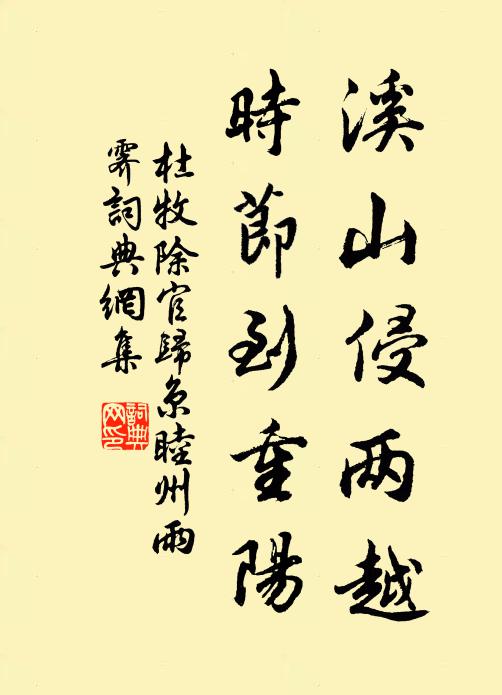 溪山侵两越
時節到重陽
杜牧除官歸京睦州雨
霽詞典網集
詞典网印